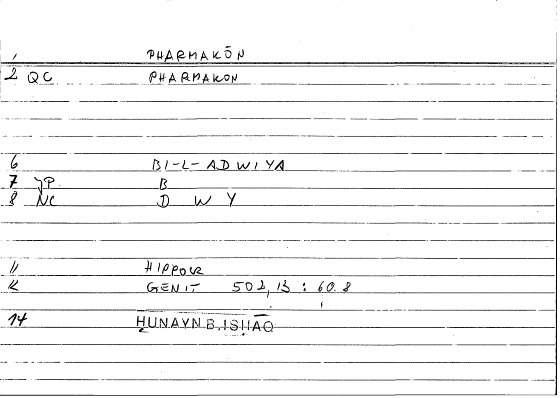 1 PHARMAKŌN
2 QC PHARMAKON
6 BI-L-ADWIYA
7 JP B
8 NC D W Y
11 HIPPOCR
12 GENIT 502, 13 : 60.8
14 ḤUNAYN B. ISḤĀQ